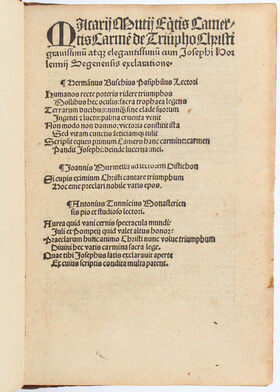 Macarij Mutij Eq̃tis Camer-
tis Carmẽ de Triũpho Christi
grauissimũ atq; elegantissimũ cum Josephi Hor
lennij Segenensis exclaratione
¶ Hermãnus Buschius Pasiphilus Lectori
Humanos recte poteris ridere triumphos
Mollibus hec oculis sacra trophaea legens
Terrarum
Ingenti luctu palma cruenta venit
Non modo non damno victoria constitit ista
Sed vitam cunctis leticiamq; tulit
Scripsit eques primũ Camers hanc carmine carmen
Pandit Josephi deinde lucerna
¶ Joannis Murmellij ad lectorem Distichon
Si cupis eximium Christi cantare triumphum
Hoc eme preclari nobile vatis epos.
¶ Antonius Tunnicius Monasterien
sis pio et studioso lectori.
Aurea quid vani cernis spectacula mundi:
Juli et Pompeij quid valet altus honor:
Praeclarum hunc animo Christi nunc volue triumphum
Diuini hec vatis carmina sacra lege.
Quae tibi Josephus satis exclarauit aperte
Ex cuius scriptis condita multa patent.